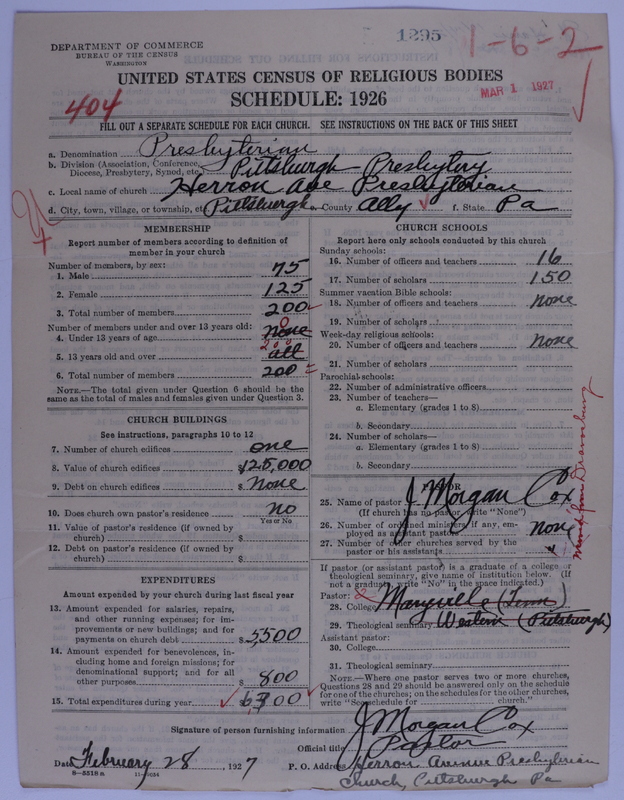 1295
1-6-2
DEPARTMENT OF COMMERCE
BUREAU OF THE CENSUS
WASHINGTON
UNITED STATES CENSUS OF RELIGIOUS BODIES
MAR 1 1927
404
SCHEDULE: 1926
FILL OUT A SEPARATE SCHEDULE FOR EACH CHURCH. SEE INSTRUCTIONS ON THE BACK OF THIS SHEET
a. Denomination Presbyterian
b. Division (Association, Conference, Diocese, Presbytery, Synod, etc.) Pittsburgh Presbytery
c. Local name of church Herron Ave Presbyterian
d. City, town, village, or township, etc. Pittsburgh e. County Ally f. State Pa
MEMBERSHIP
Report number of members according to definition of
member in your church
Number of members, by sex:
1. Male 75
2. Female 125
3. Total number of members 200
Number of members under and over 13 years old:
4. Under 13 years of age none 0
5. 13 years old and over all 200
6. Total number of members 200
NOTE.—The total given under Question 6 should be the
same as the total of males and females given under Question 3.
CHURCH BUILDINGS
See instructions, paragraphs 10 to 12
7. Number of church edifices one
8. Value of church edifices $125,000
9. Debt on church edifices $ None
10. Does church own pastor's residence? no
Yes or No
11. Value of pastor's residence (if owned by
church) $
12. Debt on pastor's residence (if owned by
church) $
EXPENDITURES
Amount expended by your church during last fiscal year
13. Amount expended for salaries, repairs,
and other running expenses; for im-
provements or new buildings; and for
payments on church debt $5,500
14. Amount expended for benevolences, in-
cluding home and foreign missions; for
denominational support; and for all
other purposes $ 800
15. Total expenditures during year $6300
CHURCH SCHOOLS
Report here only schools conducted by this church
Sunday schools:
16. Number of officers and teachers 16
17. Number of scholars 150
Summer vacation Bible schools:
18. Number of officers and teachers none
19. Number of scholars
Week-day religious schools:
20. Number of officers and teachers None
21. Number of scholars
Parochial schools:
22. Number of administrative officers
23. Number of teachers—
a. Elementary (grades 1 to 8)
b. Secondary
24. Number of scholars—
a. Elementary (grades 1 to 8)
b. Secondary
PASTOR
25. Name of pastor J. Morgan Cox
(If church has no pastor write "None")
26. Number of ordained ministers, if any, em-
ployed as assistant pastors none
27. Number of other churches served by the
pastor or his assistant
If pastor (or assistant pastor) is a graduate of a college or
theological seminary, give name of institution below. (If
not a graduate, write "No" in the space indicated.)
Pastor: 2
28. College Maryville (Tenn)
29. Theological seminary Western (Pittsburgh)
Assistant pastor:
30. College
31. Theological seminary
NOTE.—Where one pastor serves two or more churches,
Questions 28 and 29 should be answered only on the schedule
for one of the churches; on the schedules for the other churches,
write "See schedule for church."
Signature of person furnishing information J Morgan Cox
Official title Pastor
Date February 28, 1927 P. O. Address Herron Avenue Presbyterian
Church, Pittsburgh Pa
8—5518 a